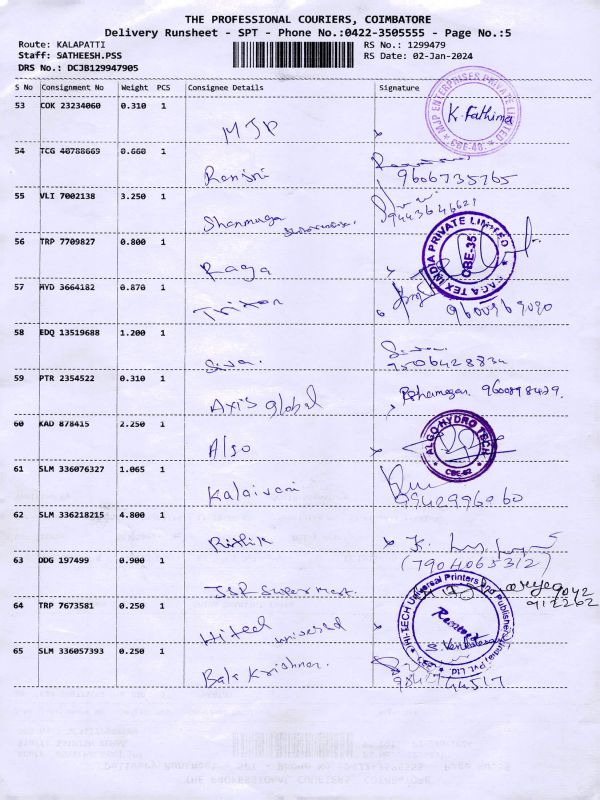 THE PROFESSIONAL COURIERS, COIMBATORE
Delivery Runsheet - SPT - Phone No.:0422-3505555 - Page No.:5
Route: KALAPATTI RS No.: 1299479
Staff: SATHEESH.PSS RS Date: 02-Jan-2024
DRS No.: DCJB129947905
S No Consignment No Weight PCS Consignee Details Signature
53 COK 23234060 0.310 1 MJP K. Fathima
MJP ENTERPRISES PRIVATE LIMITED CBE-48
54 TCG 40788669 0.660 1 Ranjni
9606735765
55 VLI 7002138 3.250 1 Shanmuga
9443646621
56 TRP 7709827 0.800 1 Raga
RAGA TEX INDIA PRIVATE LIMITED CBE-35
57 HYD 3664182 0.870 1 Trixon
58 EDQ 13519688 1.200 1 Siva.
59 PTR 2354522 0.310 1 Axis global
60 KAD 878415 2.250 1 Algo
ALGO HYDRO TECH CBE-62
61 SLM 336076327 1.065 1 Kalaivani
9942996060
62 SLM 336218215 4.800 1 Rithik
(7904065312)
63 DDG 197499 0.900 1 JSR Super Mart.
64 TRP 7673581 0.250 1 Hitech universal
HI-TECH Universal Printers and Publishers (India) Pvt. Ltd.
65 SLM 336057393 0.250 1 Bala Krishnan.
9842744517